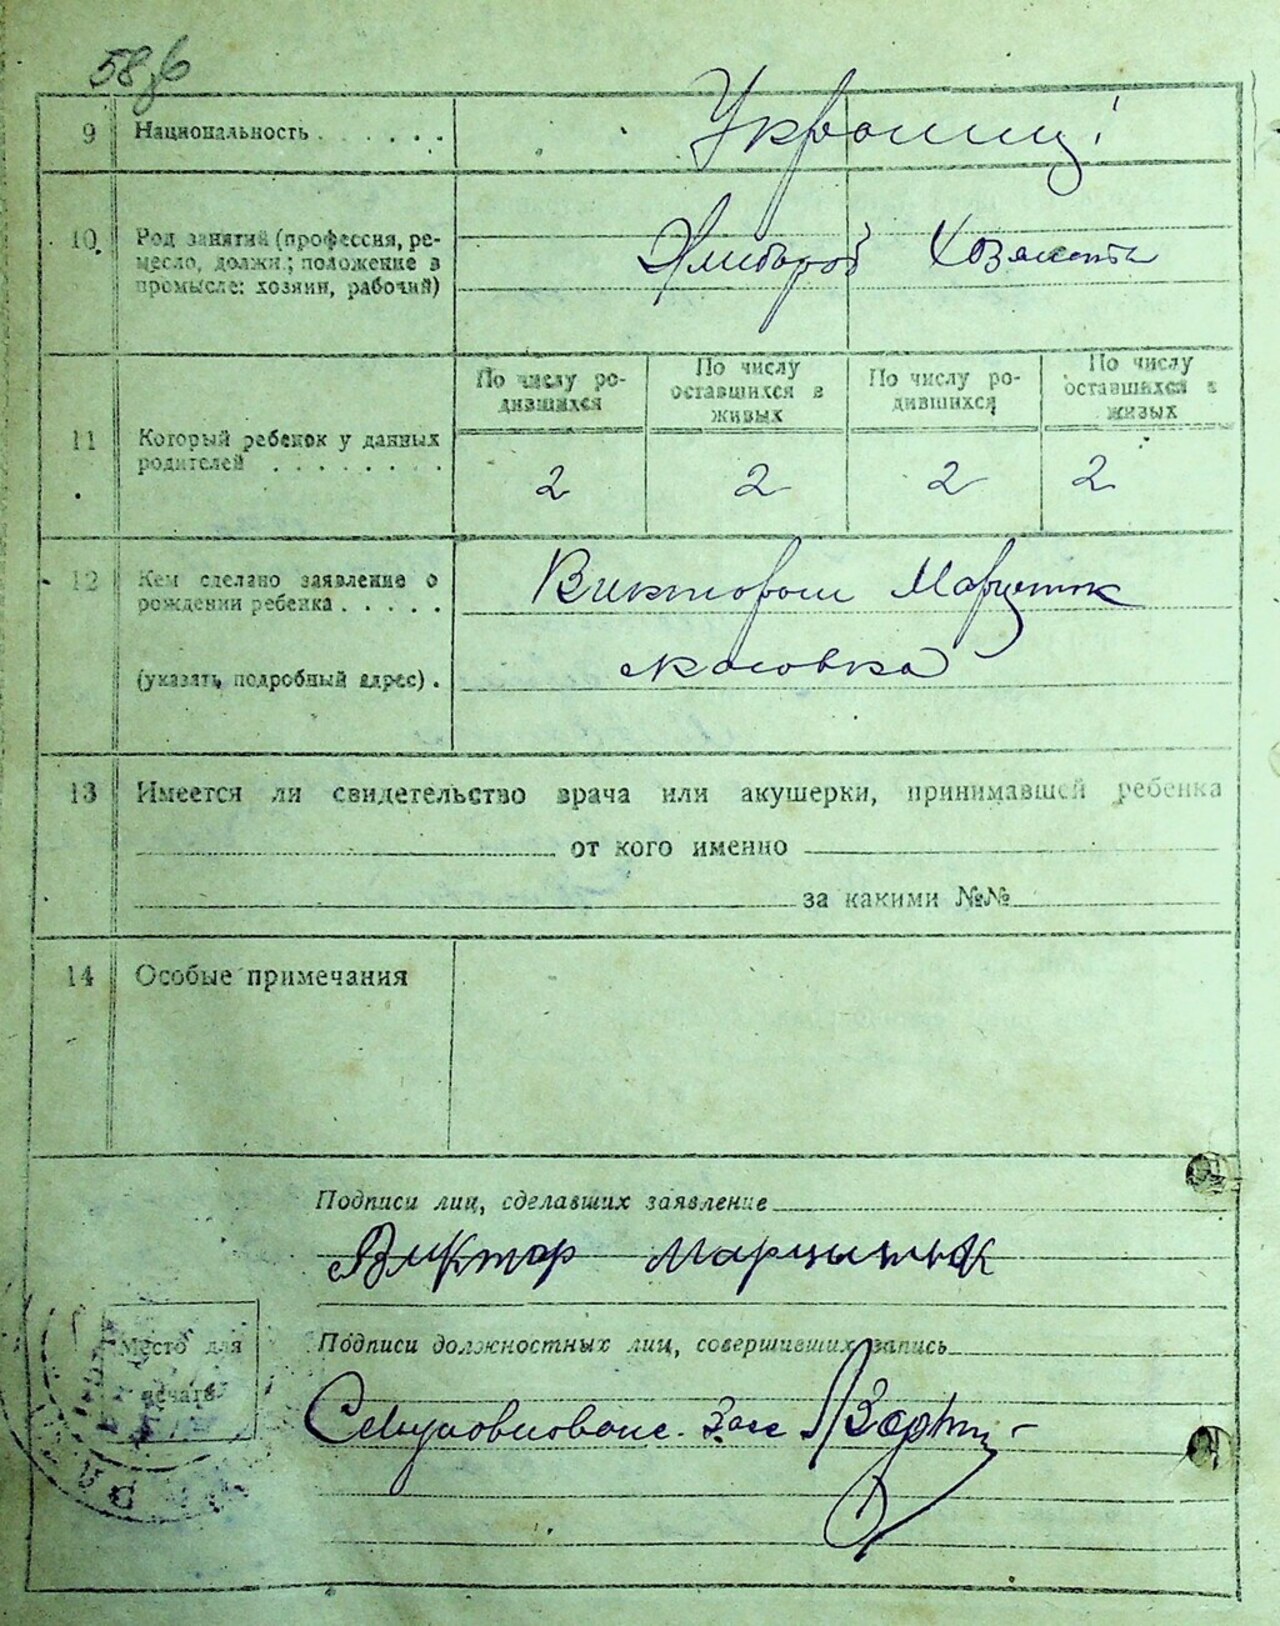 58
9 Национальность . . . . . . Украинці
10. Род занятий (профессия, ре-
месло, должн.; положение в
промысле: хозяин, рабочий)
Хлибороб
По числу ро-
дившихся
По числу
оставшихся в
живых
По числу ро-
дившихся
По числу
оставшихся в
живых
11 Который ребенок у данных
родителей . . . . . . . .
2 2 2 2
12 Кем сделано заявление о
рождении ребенка . . . . .
Виктором Марцинюк
(указать подробный адрес) .
13 Имеется ли свидетельство врача или акушерки, принимавшей ребенка
от кого именно
за какими №№
14 Особые примечания
Подписи лиц, сделавших заявление
Виктор Марцынюк
Место для
печати
Подписи должностных лиц, совершивших запись